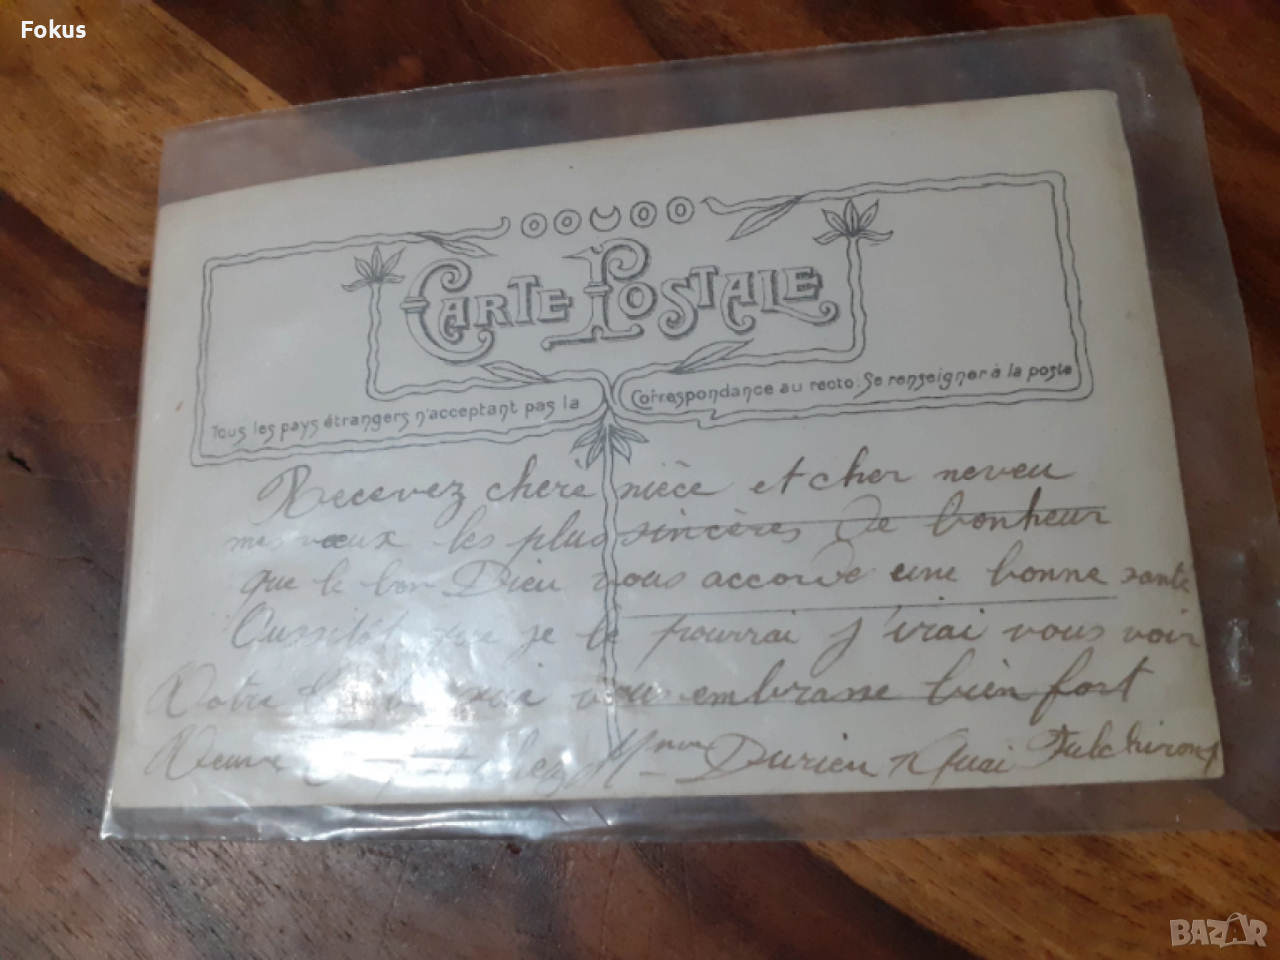 Fokus
CARTE POSTALE
Tous les pays étrangers n'acceptant pas la Correspondance au recto: Se renseigner à la poste
Recevez chère nièce et cher neveu
mes vœux les plus sincères de bonheur
que le bon Dieu vous accorde une bonne santé
Aussitôt que je le pourrai j'irai vous voir
Votre vous embrasse bien fort
Veuve chez Mme Durieu 7 Quai Fulchiron
BAZAR